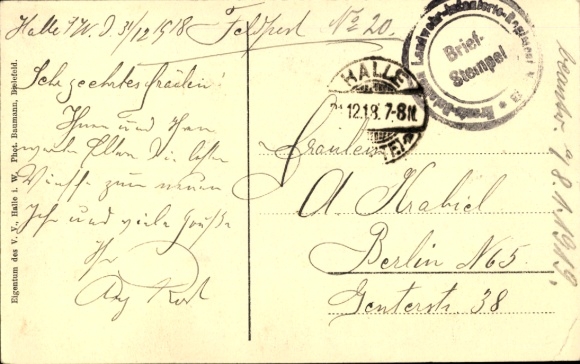 Halle i/W. d. 31/12 1918 Feldpost No 20.
Sehr geehrtes Fräulein!
Ihnen und Ihren
werten Eltern die besten
Wünsche zum neuen
Jahr und viele Grüße
Ihr
Fräulein
A. Krabiel
Berlin N65.
Genterstr. 38
HALLE
12.18. 7-8 N.
Landwehr-Infanterie-Regiment
Brief-
Stempel
8.1.1919.
Eigentum des V. V. Halle i. W. Phot. Baumann, Bielefeld.